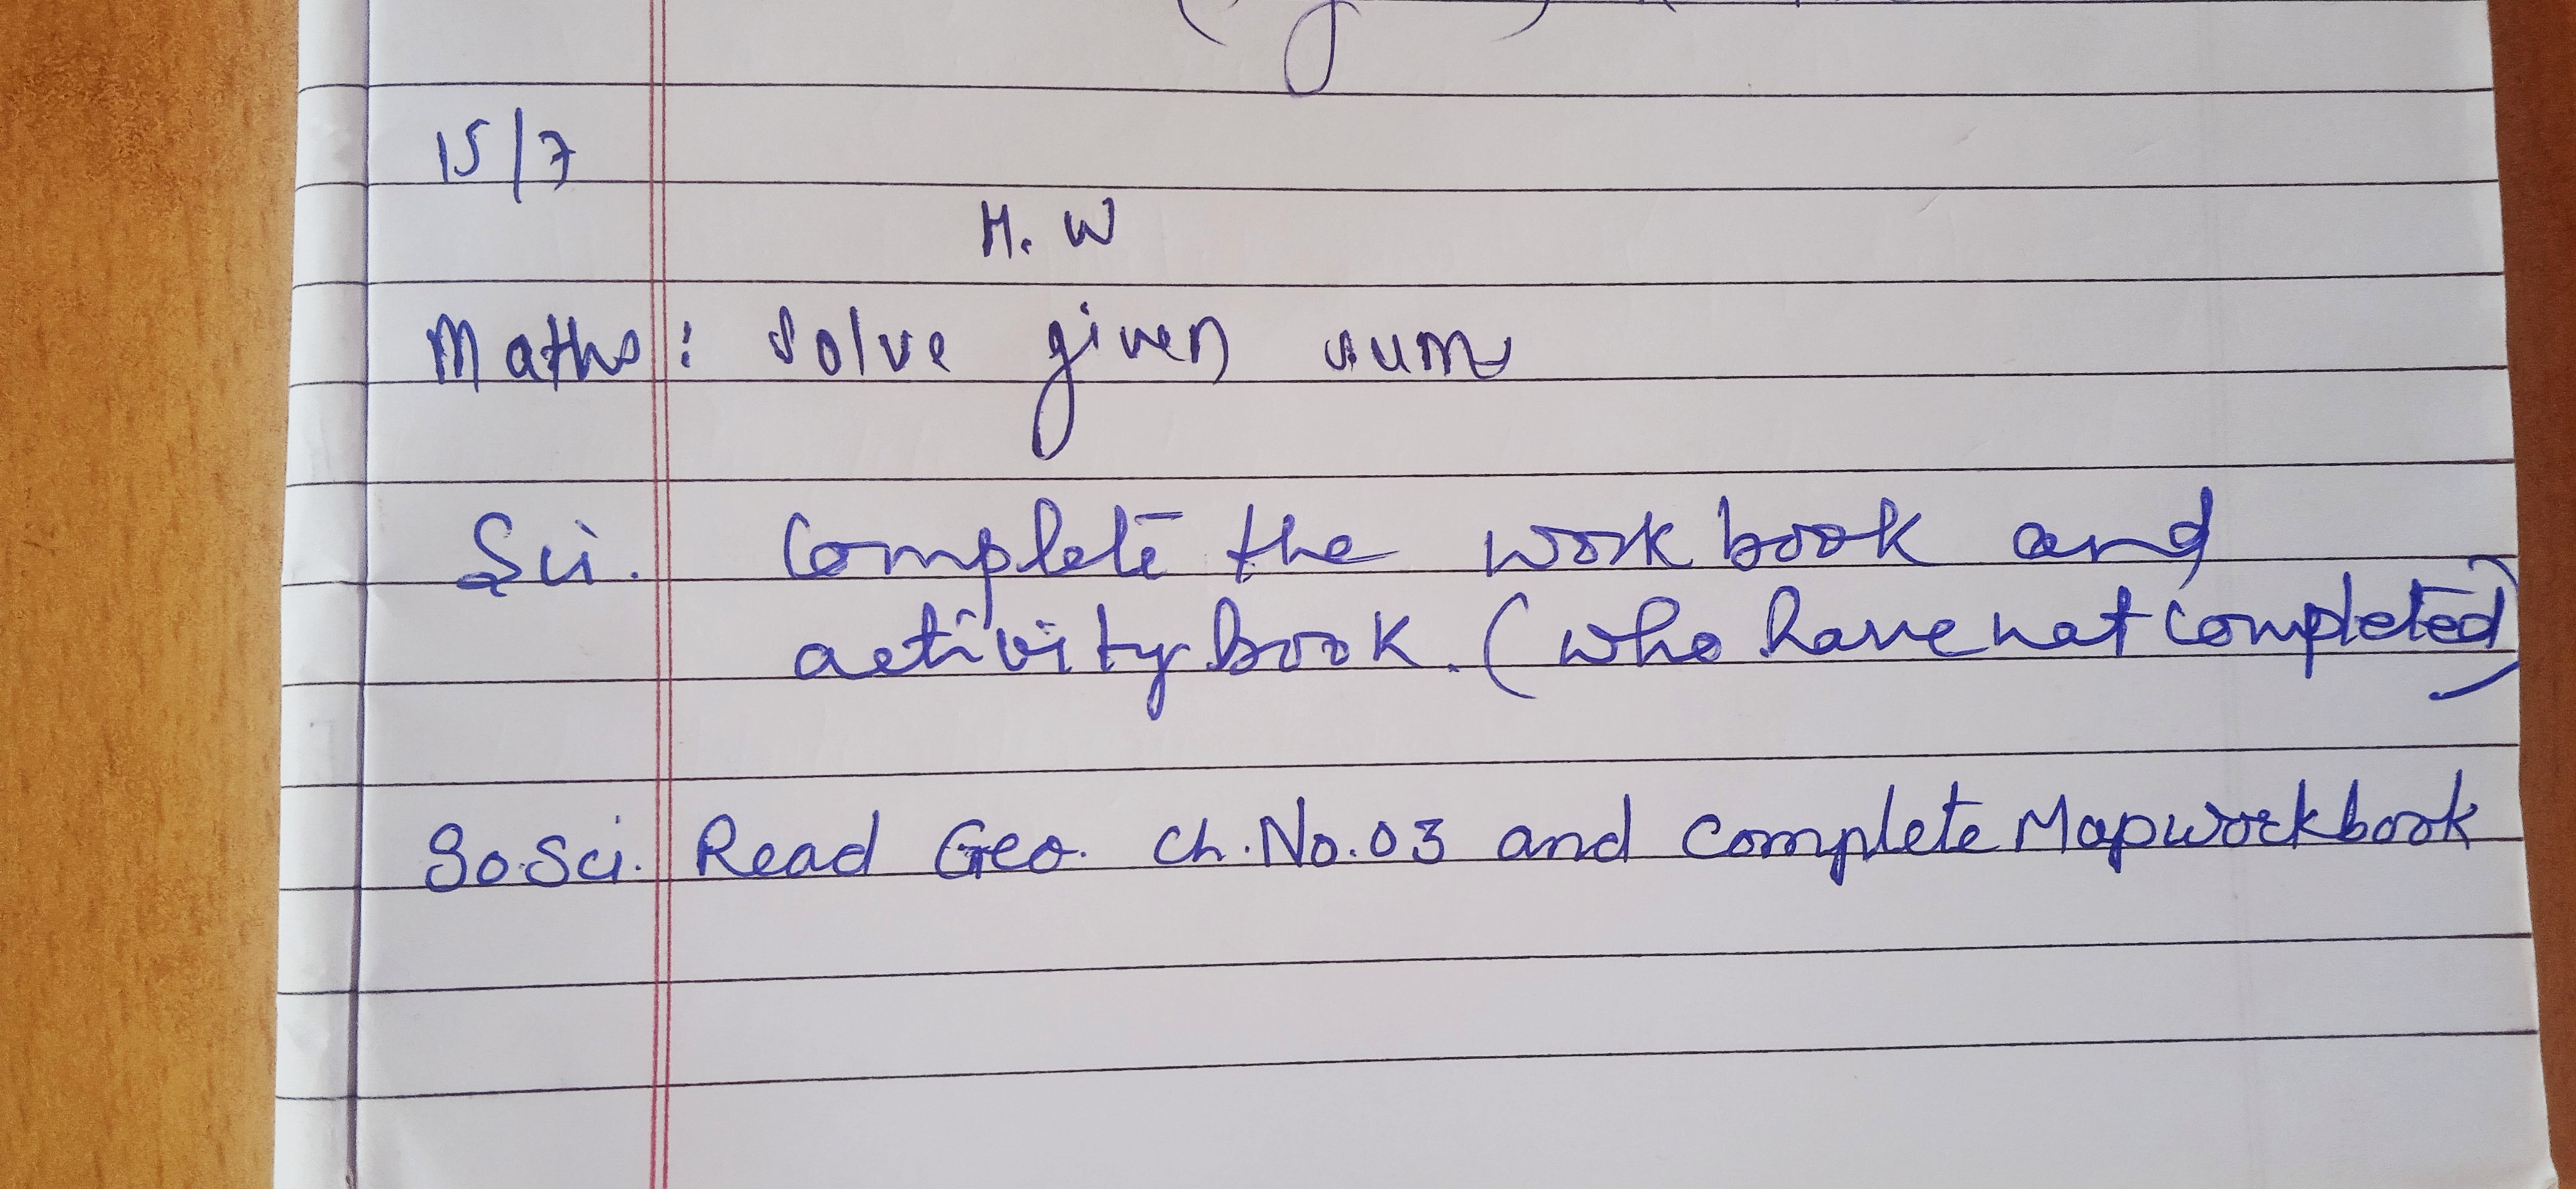 15/7
H.W
Maths: Solve given sums
Sci. Complete the work book and
activity book. (who have not completed)
So.Sci. Read Geo. Ch.No.03 and complete Mapworkbook